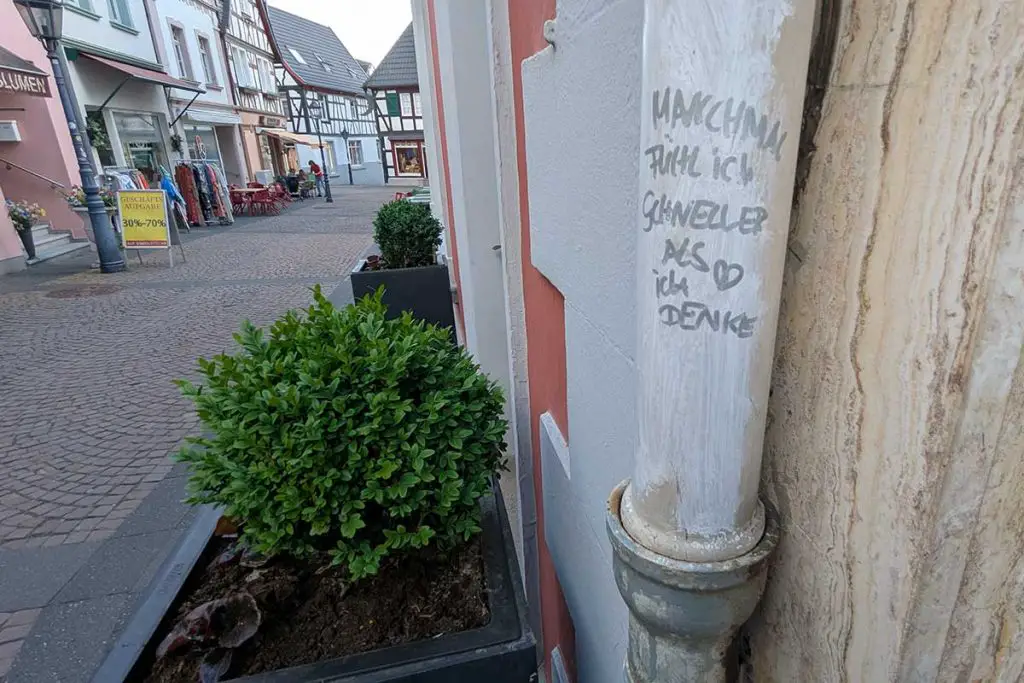 BLUMEN
GESCHÄFTS
AUFGABE
30%-70%
MANCHMAL
FÜHL ICH
SCHNELLER
ALS ♡
ich
DENKE